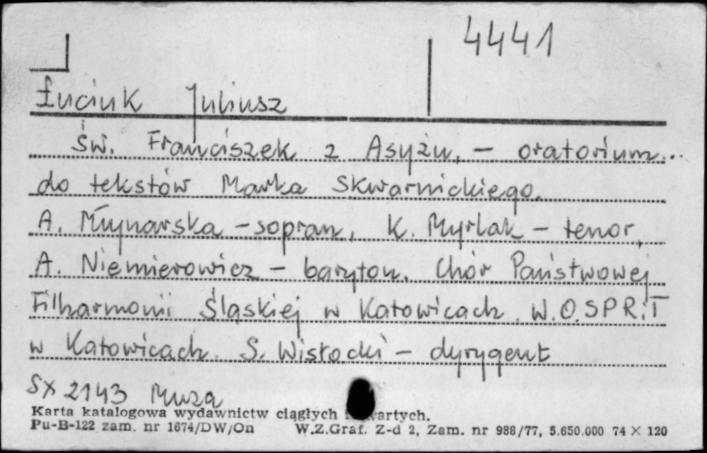 4441
Łuciuk Juliusz
Św. Franciszek z Asyżu, – oratorium
do tekstów Marka Skwarnickiego.
A. Młynarska – sopran, K. Myrlak – tenor,
A. Niemierowicz – baryton. Chór Państwowej
Filharmonii Śląskiej w Katowicach. W.O.S.P.R.iT
w Katowicach. S. Wisłocki – dyrygent
SX 2143 Muza
Karta katalogowa wydawnictw ciągłych
Pu-B-122 zam. nr 1674/DW/On W.Z.Graf. Z-d 2, Zam. nr 988/77, 5.650.000 74 × 120